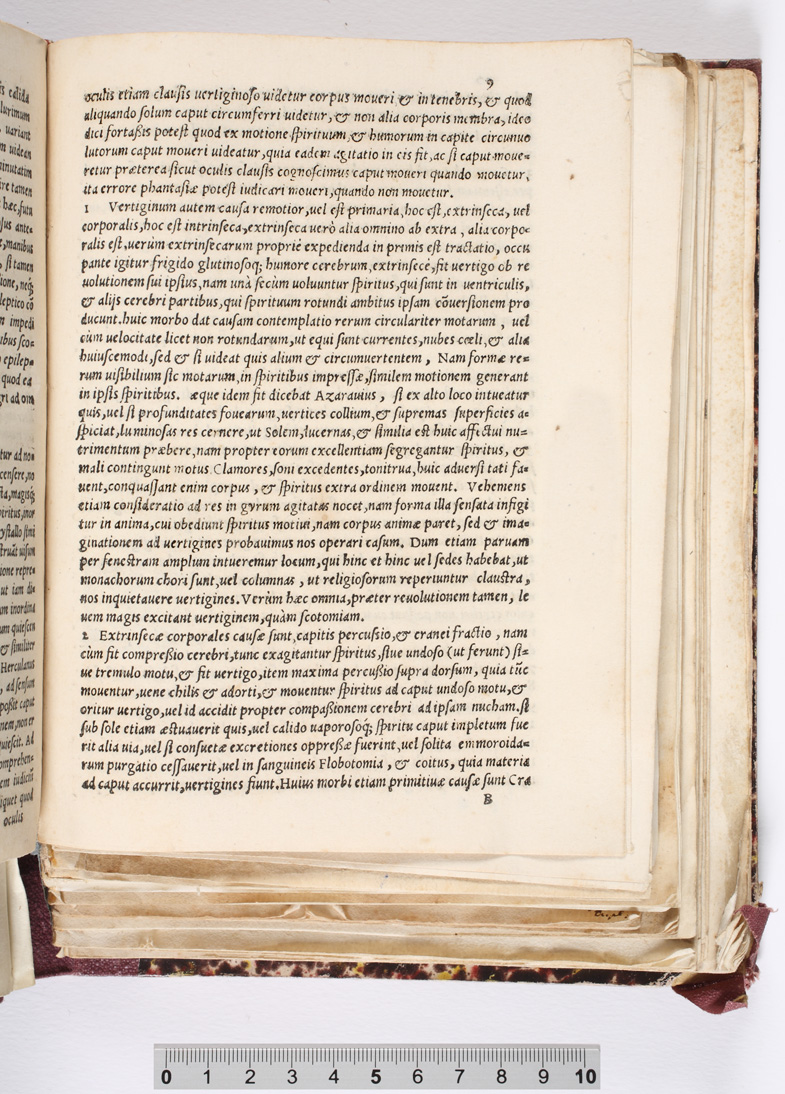 9
oculis etiam clauſis uertiginoſo uidetur corpus moueri & in tenebris, & quod
aliquando ſolum caput circumferri uidetur, & non alia corporis membra, ideo
dici fortaßis poteſt quod ex motione ſpirituum, & humorum in capite circunuo
lutorum caput moueri uideatur, quia eadem agitatio in eis fit, ac ſi caput moue=
retur præterea ſicut oculis clauſis cognoſcimus caput moueri quando mouetur,
ita errore phantaſiæ poteſt iudicari moueri, quando non mouetur.
1 Vertiginum autem cauſa remotior, uel eſt primaria, hoc eſt, extrinſeca, uel
corporalis, hoc eſt intrinſeca, extrinſeca uerò alia omnino ab extra, alia corpo=
ralis eſt, uerùm extrinſecarum propriè expedienda in primis eſt tractatio, occu
pante igitur frigido glutinoſoq; humore cerebrum, extrinſecè, fit uertigo ob re
uolutionem ſui ipſius, nam unà ſecùm uoluuntur ſpiritus, qui ſunt in uentriculis,
& alijs cerebri partibus, qui ſpirituum rotundi ambitus ipſam cōuerſionem pro
ducunt. huic morbo dat cauſam contemplatio rerum circulariter motarum, uel
cùm uelocitate licet non rotundarum, ut equi ſunt currentes, nubes cœli, & alia
huiuſcemodi, ſed & ſi uideat quis alium & circumuertentem, Nam formæ re=
rum uiſibilium ſic motarum, in ſpiritibus impreſſæ, ſimilem motionem generant
in ipſis ſpiritibus. æque idem fit dicebat Azarauius, ſi ex alto loco intueatur
quis, uel ſi profunditates fouearum, uertices collium, & ſupremas ſuperficies a=
ſpiciat, luminoſas res cernere, ut Solem, lucernas, & ſimilia eſt huic affectui nu=
trimentum præbere, nam propter eorum excellentiam ſegregantur ſpiritus, &
mali contingunt motus. Clamores, ſoni excedentes, tonitrua, huic aduerſitati fa=
uent, conquaſſant enim corpus, & ſpiritus extra ordinem mouent. Vehemens
etiam conſideratio ad res in gyrum agitatas nocet, nam forma illa ſenſata infigi
tur in anima, cui obediunt ſpiritus motiui, nam corpus animæ paret, ſed & ima=
ginationem ad uertigines probauimus nos operari caſum. Dum etiam paruam
per feneſtram amplum intueremur locum, qui hinc et hinc uel ſedes habebat, ut
monachorum chori ſunt, uel columnas, ut religioſorum reperiuntur clauſtra,
nos inquietauere uertigines. Verùm hæc omnia, præter reuolutionem tamen, le
uem magis excitant uertiginem, quàm ſcotomiam.
2 Extrinſecæ corporales cauſæ ſunt, capitis percuſsio, & cranei fractio, nam
cùm fit compreßio cerebri, tunc exagitantur ſpiritus, ſiue undoſo (ut ferunt) ſi=
ue tremulo motu, & fit uertigo, item maxima percußio ſupra dorſum, quia tūc
mouentur, uene chilis & adorti, & mouentur ſpiritus ad caput undoſo motu, &
oritur uertigo, uel id accidit propter compaßionem cerebri ad ipſam nucham. ſi
ſub ſole etiam æſtuauerit quis, uel calido uaporoſoq; ſpiritu caput impletum fue
rit alia uia, uel ſi conſuetæ excretiones oppreßæ fuerint, uel ſolita emmoroida=
rum purgatio ceſſauerit, uel in ſanguineis Flobotomia, & coitus, quia materia
ad caput accurrit, uertigines fiunt. Huius morbi etiam primitiuæ cauſæ ſunt Cra
B
is calida
lurimum
uariant
m uidean
minutatim
re tamen
manibus
ſi tamen
ione, neq;
leptico cō
m impedi
ibus ſco=
epilep=
quod ea
gri ad om
tur ad no
cenſere, no
ſta, magisq;
yſtallo ſimi
ione repre=
ut iam di=
um inordina
am quieſcen
& ſimiliter
Herculanus
ad ſenſum
poßit caput
nem, non er
uieſcit. Ad
omprehen=
em iudiciū
iquet quod
oculis
0 1 2 3 4 5 6 7 8 9 10